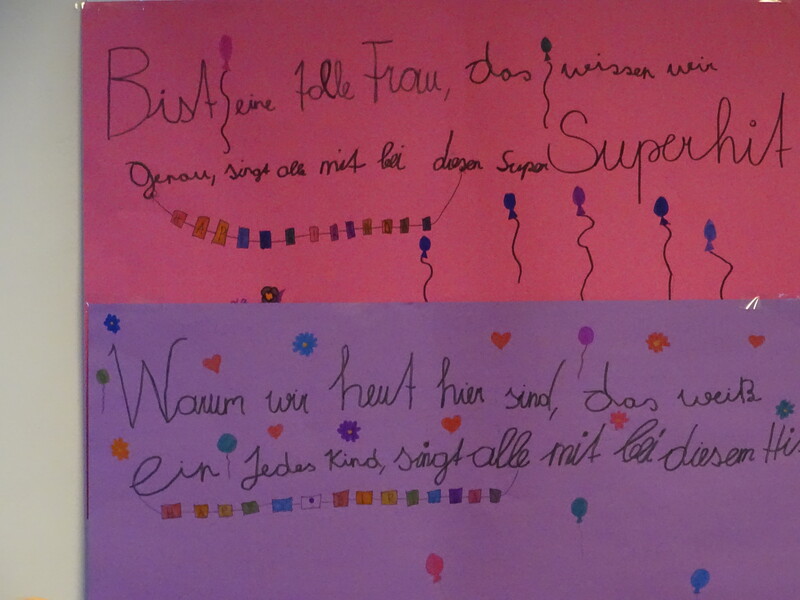 Bist eine tolle Frau, das wissen wir
Genau, singt alle mit bei diesen Super Superhit
Warum wir heut hier sind, das weiß
ein Jedes Kind, singt alle mit bei diesem Hi